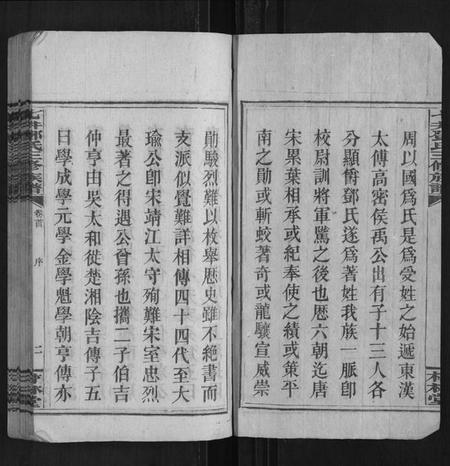 七井鄧氏三修族譜
周以國爲氏是爲受姓之始遞東漢
太傅高密侯禹公出有子十三人各
分顯爵鄧氏遂爲著姓我族一脈卽
校尉訓將軍騭之後也歷六朝迄唐
宋累葉相承或紀奉使之績或策平
南之勛或斬蛟著奇或龍驤宣威崇
勛駿烈難以枚舉歷史雖不絶書而
支派似覺難詳相傳四十四代至大
瑜公卽宋靖江太守殉難宋室忠烈
最著之得遇公曾孫也攜二子伯吉
仲亨由吳太和徙楚湘陰吉傳子五
曰學成學元學金學魁學朝亨傳亦
七井鄧氏三修族譜
卷首
序
二